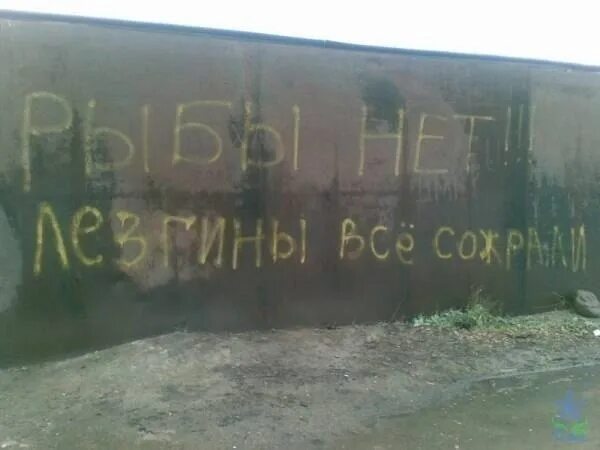 РЫБЫ НЕТ!!!
ЛЕЗГИНЫ ВСЁ СОЖРАЛИ